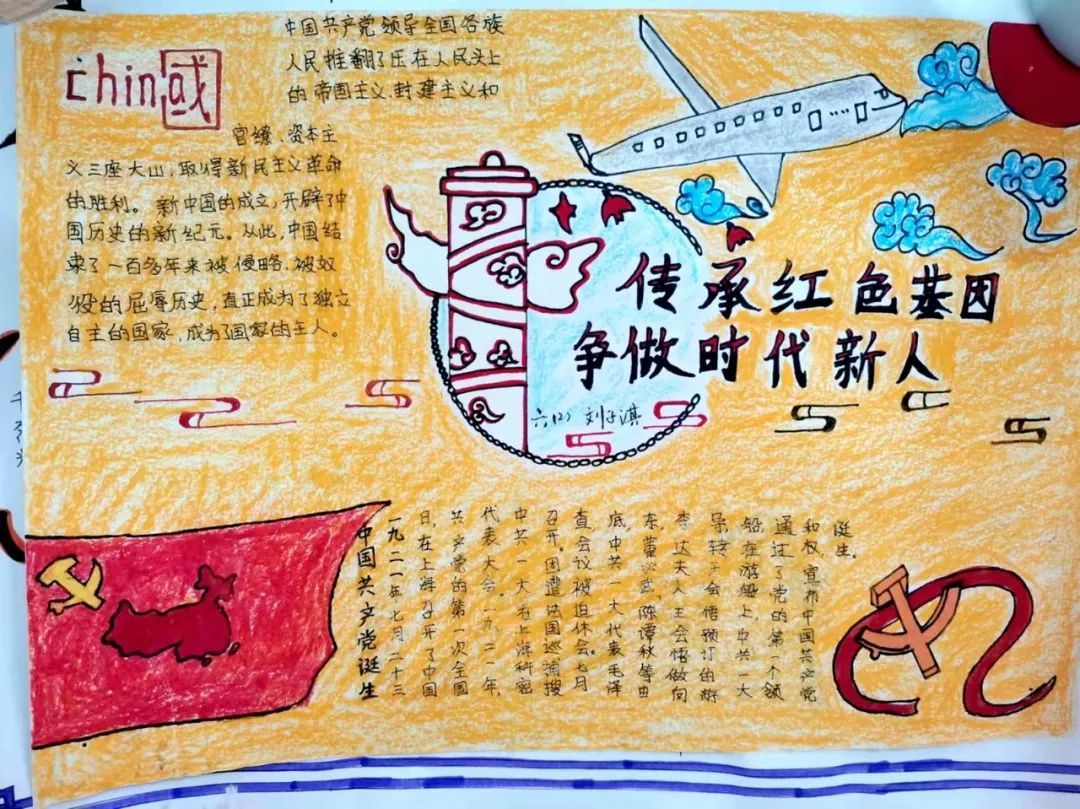 chin或
中国共产党领导全国各族
人民推翻了压在人民头上
的帝国主义、封建主义和
官缭、资本主
义三座大山,取得新民主义革命
的胜利。新中国的成立,开辟了中
国历史的新纪元。从此,中国结
束了一百多年来被侵略、被奴
役的屈辱历史,真正成为了独立
自主的国家,成为了国家的主人。
传承红色基因
争做时代新人
六(2) 刘子淇
中国共产党诞生
一九二一年七月二十三
日,在上海召开了中国
共产党的第一次全国
代表大会。一九二一年,
中共一大在上海秘密
召开。因遭法国巡捕搜
查会议被迫休会。七月
底,中共一大代表毛泽
东、董必武、陈谭秋等由
李达夫人王会悟做向
导转会悟预订的游
船在游船上,中共一大
通过了党的第一个领
和权,宣布中国共产党
诞生。